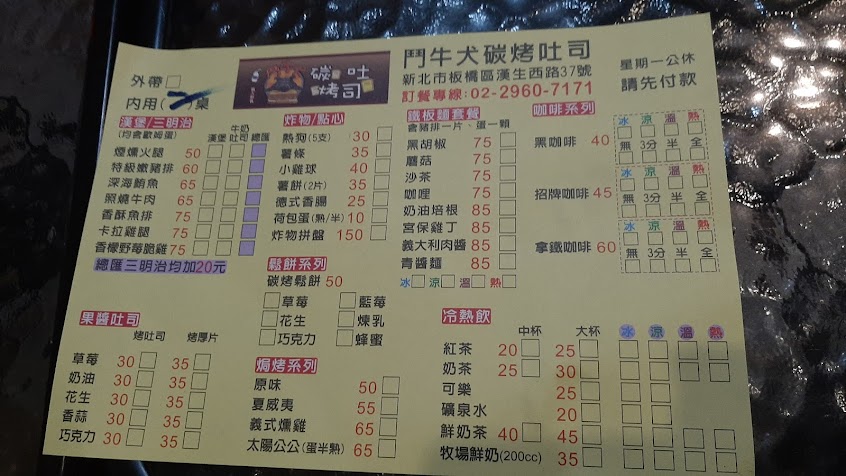 鬥牛犬碳烤吐司
新北市板橋區漢生西路37號
訂餐專線:02-2960-7171
星期一公休
請先付款
外帶
內用( )桌
碳烤吐司
漢堡/三明治
(均含歐姆蛋) 漢堡 牛奶吐司 總匯
煙燻火腿 50
特級嫩豬排 60
深海鮪魚 65
照燒牛肉 65
香酥魚排 75
卡拉雞腿 75
香檬野莓脆雞 75
總匯三明治均加20元
炸物/點心
熱狗(5支) 30
薯條 35
小雞球 40
薯餅(2片) 35
德式香腸 25
荷包蛋(熟/半) 10
炸物拼盤 150
鐵板麵套餐
含豬排一片、蛋一顆
黑胡椒 75
蘑菇 75
沙茶 75
咖哩 75
奶油培根 85
宮保雞丁 85
義大利肉醬 85
青醬麵 85
冰 涼 溫 熱
咖啡系列
冰 涼 溫 熱
黑咖啡 40
無 3分 半 全
冰 涼 溫 熱
招牌咖啡 45
無 3分 半 全
冰 涼 溫 熱
拿鐵咖啡 60
無 3分 半 全
鬆餅系列
碳烤鬆餅 50
草莓 藍莓
花生 煉乳
巧克力 蜂蜜
果醬吐司
烤吐司 烤厚片
草莓 30 35
奶油 30 35
花生 30 35
香蒜 30 35
巧克力 30 35
焗烤系列
原味 50
夏威夷 55
義式燻雞 65
太陽公公(蛋半熟) 65
冷熱飲
中杯 大杯 冰 涼 溫 熱
紅茶 20 25
奶茶 25 30
可樂 25
礦泉水 20
鮮奶茶 40 45
牧場鮮奶(200cc) 35